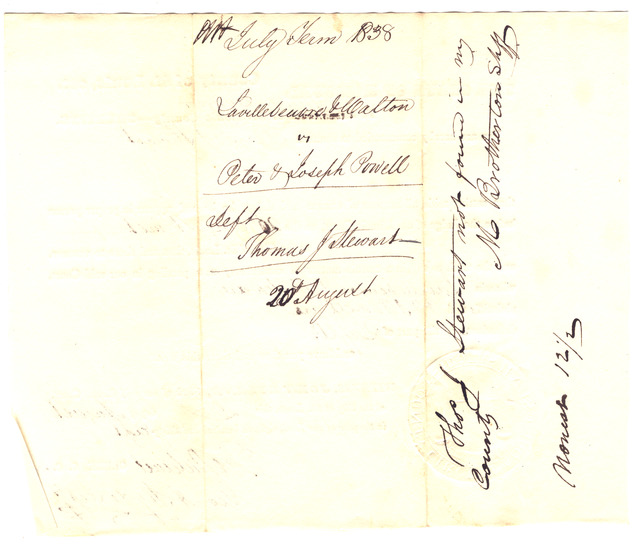 July Term 1838
Lavillebeuvre & Walton
vs
Peter & Joseph Powell
Deft
Thomas J Stewart
20th August
Thos J Stewart not found in my
County M Brotherton Shff
Nonest 12 1/2